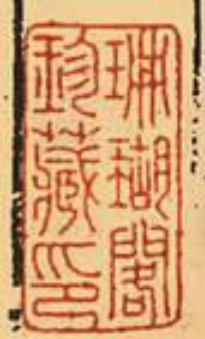 珊瑚閣
珍藏印